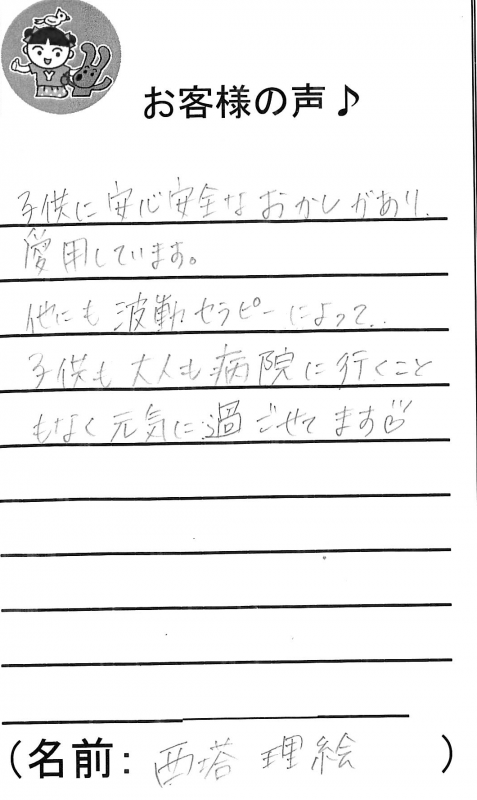 お客様の声♪
子供に安心安全なおかしがあり、
愛用しています。
他にも波動セラピーによって、
子供も大人も病院に行くこと
もなく元気に過ごせてます
(名前: 西塔 理絵 )